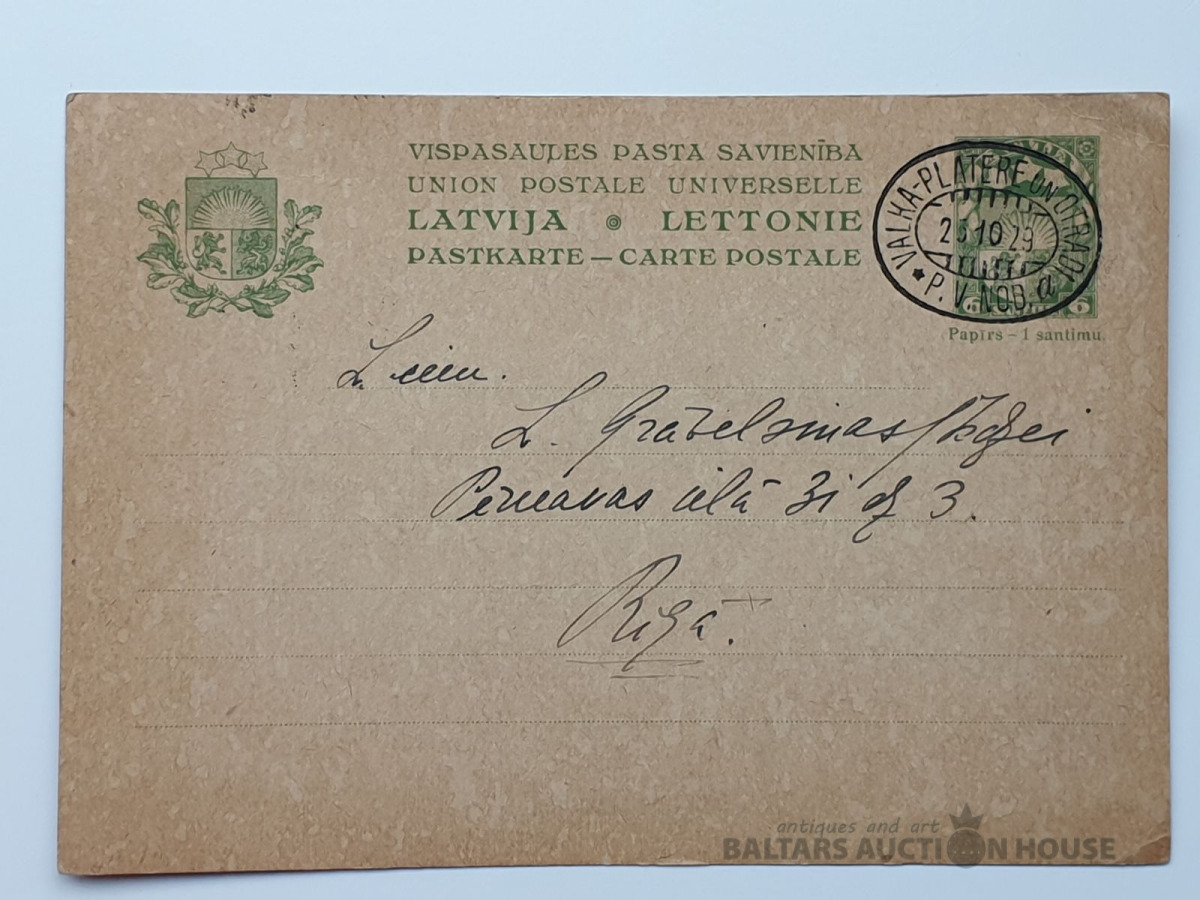 VISPASAUĻES PASTA SAVIENĪBA
UNION POSTALE UNIVERSELLE
LATVIJA LETTONIE
PASTKARTE — CARTE POSTALE
VALKA-PLATERE UN OTRADI
10 29
P. V. NOD. a
6
Papīrs – 1 santimu.
L. cien.
L.
Pērnavas ielā 31 dz 3.
Rīgā.
antiques and art
BALTARS AUCTION HOUSE